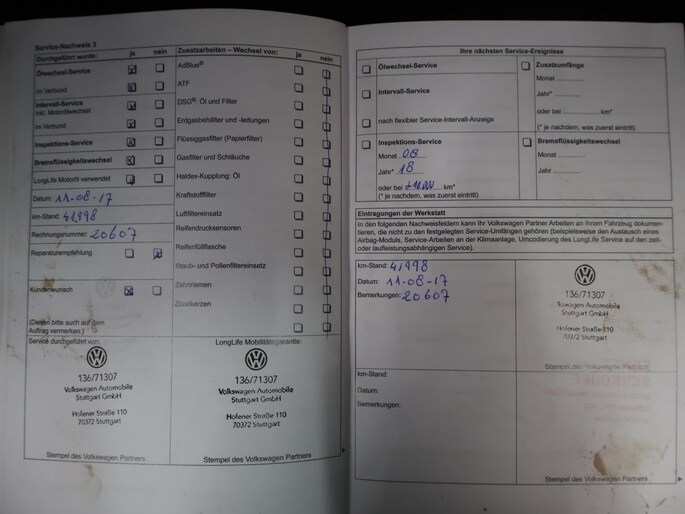 Service-Nachweis 3
Durchgeführt wurde: ja nein
Ölwechsel-Service
im Verbund
Intervall-Service
inkl. Motorölwechsel
im Verbund
Inspektions-Service
Bremsflüssigkeitswechsel
LongLife Motoröl verwendet
Datum: 11-08-17
km-Stand: 41998
Rechnungsnummer: 20607
Reparaturempfehlung
Kundenwunsch
(Diesen bitte auch auf dem
Auftrag vermerken.)
Zusatzarbeiten – Wechsel von: ja nein
AdBlue®
ATF
DSG®: Öl und Filter
Erdgasbehälter und -leitungen
Flüssiggasfilter (Papierfilter)
Gasfilter und Schläuche
Haldex-Kupplung: Öl
Kraftstofffilter
Luftfiltereinsatz
Reifendrucksensoren
Reifenfüllflasche
Staub- und Pollenfiltereinsatz
Zahnriemen
Zündkerzen
Service durchgeführt von:
136/71307
Volkswagen Automobile
Stuttgart GmbH
Hofener Straße 110
70372 Stuttgart
Stempel des Volkswagen Partners
LongLife Mobilitätsgarantie:
136/71307
Volkswagen Automobile
Stuttgart GmbH
Hofener Straße 110
70372 Stuttgart
Stempel des Volkswagen Partners
Ihre nächsten Service-Ereignisse
Ölwechsel-Service
Intervall-Service
nach flexibler Service-Intervall-Anzeige
Zusatzumfänge
Monat
Jahr*
oder bei km*
(* je nachdem, was zuerst eintritt)
Inspektions-Service
Monat 08
Jahr* 18
oder bei km*
(* je nachdem, was zuerst eintritt)
Bremsflüssigkeitswechsel
Monat
Jahr
Eintragungen der Werkstatt
In den folgenden Nachweisfeldern kann Ihr Volkswagen Partner Arbeiten an Ihrem Fahrzeug dokumen-
tieren, die nicht zu den festgelegten Service-Umfängen gehören (beispielsweise den Austausch eines
Airbag-Moduls, Service-Arbeiten an der Klimaanlage, Umcodierung des LongLife Service auf den zeit-
oder laufleistungsabhängigen Service).
km-Stand: 41998
Datum: 11-08-17
Bemerkungen: 20607
136/71307
Volkswagen Automobile
Stuttgart GmbH
Hofener Straße 110
70372 Stuttgart
Stempel des Volkswagen Partners
km-Stand:
Datum:
Bemerkungen:
Stempel des Volkswagen Partners